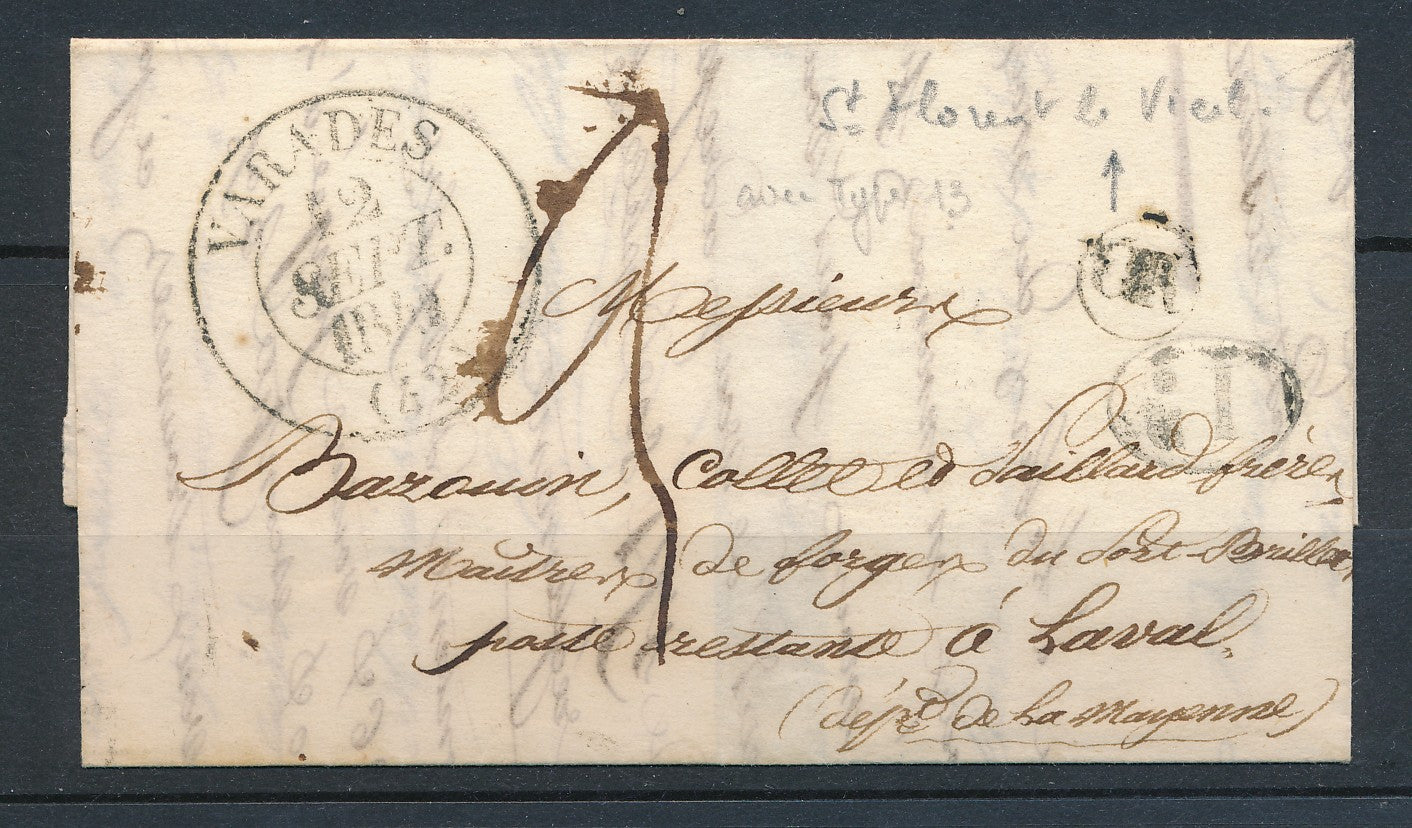 St Florent le Vieil.
avec type 13
VARADES
12
SEPT.
1841
(42)
OR
1D
Messieurs
Bazouin, Collet et Paillard frères
Maîtres de forges du Port-Brillet,
poste restante à Laval,
(dépt. de La Mayenne)